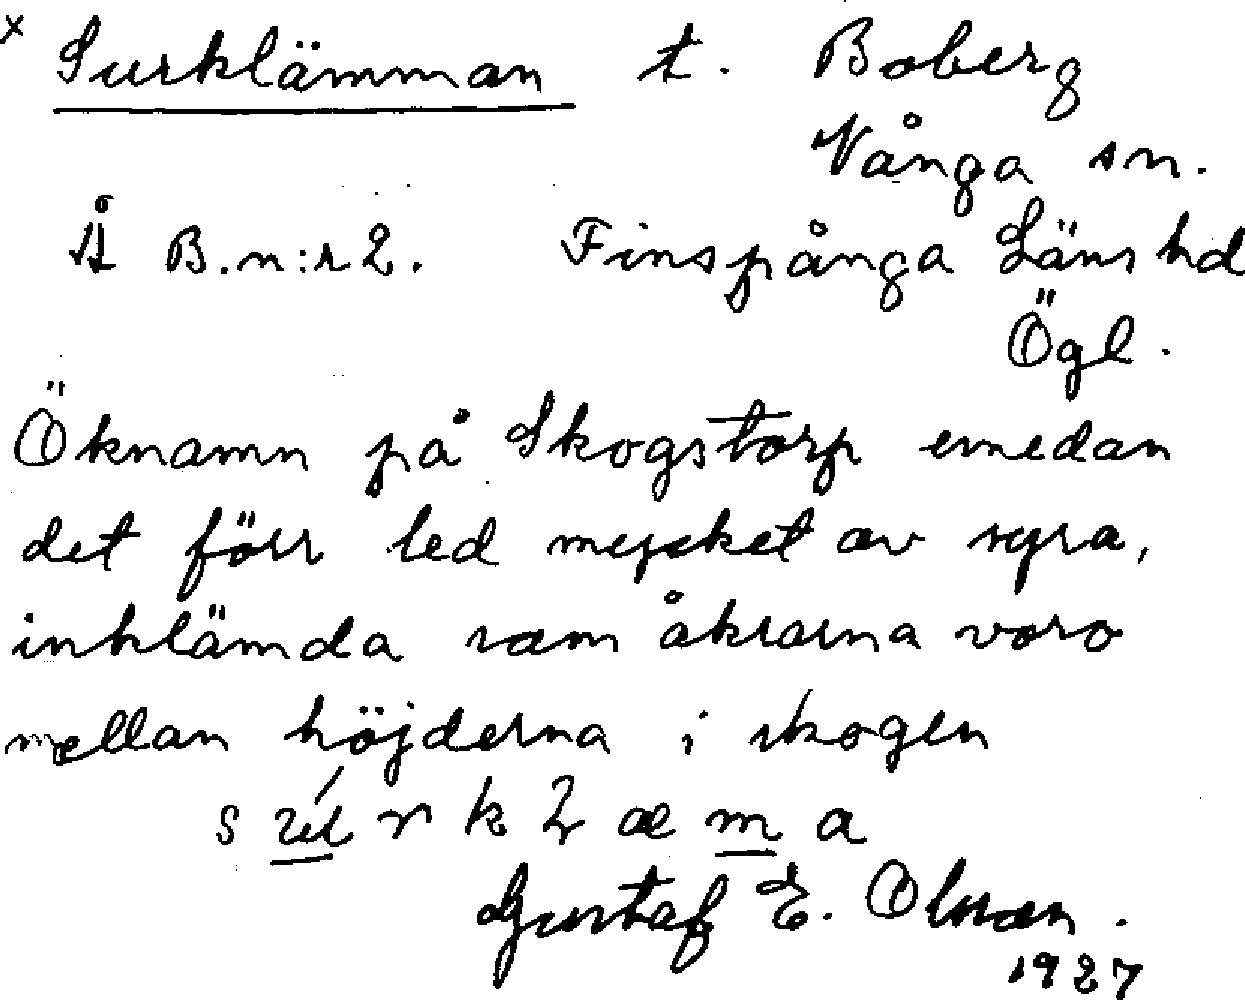 x Surklämman t. Boberg
Vånga sn.
Å B.n:r 2. Finspånga Läns hd
Ögl.
Öknamn på Skogstorp emedan
det förr led mycket av syra,
inklämda som åkrarna voro
mellan höjderna i skogen
s k æ m a
Gustaf E. Olsson.
1927